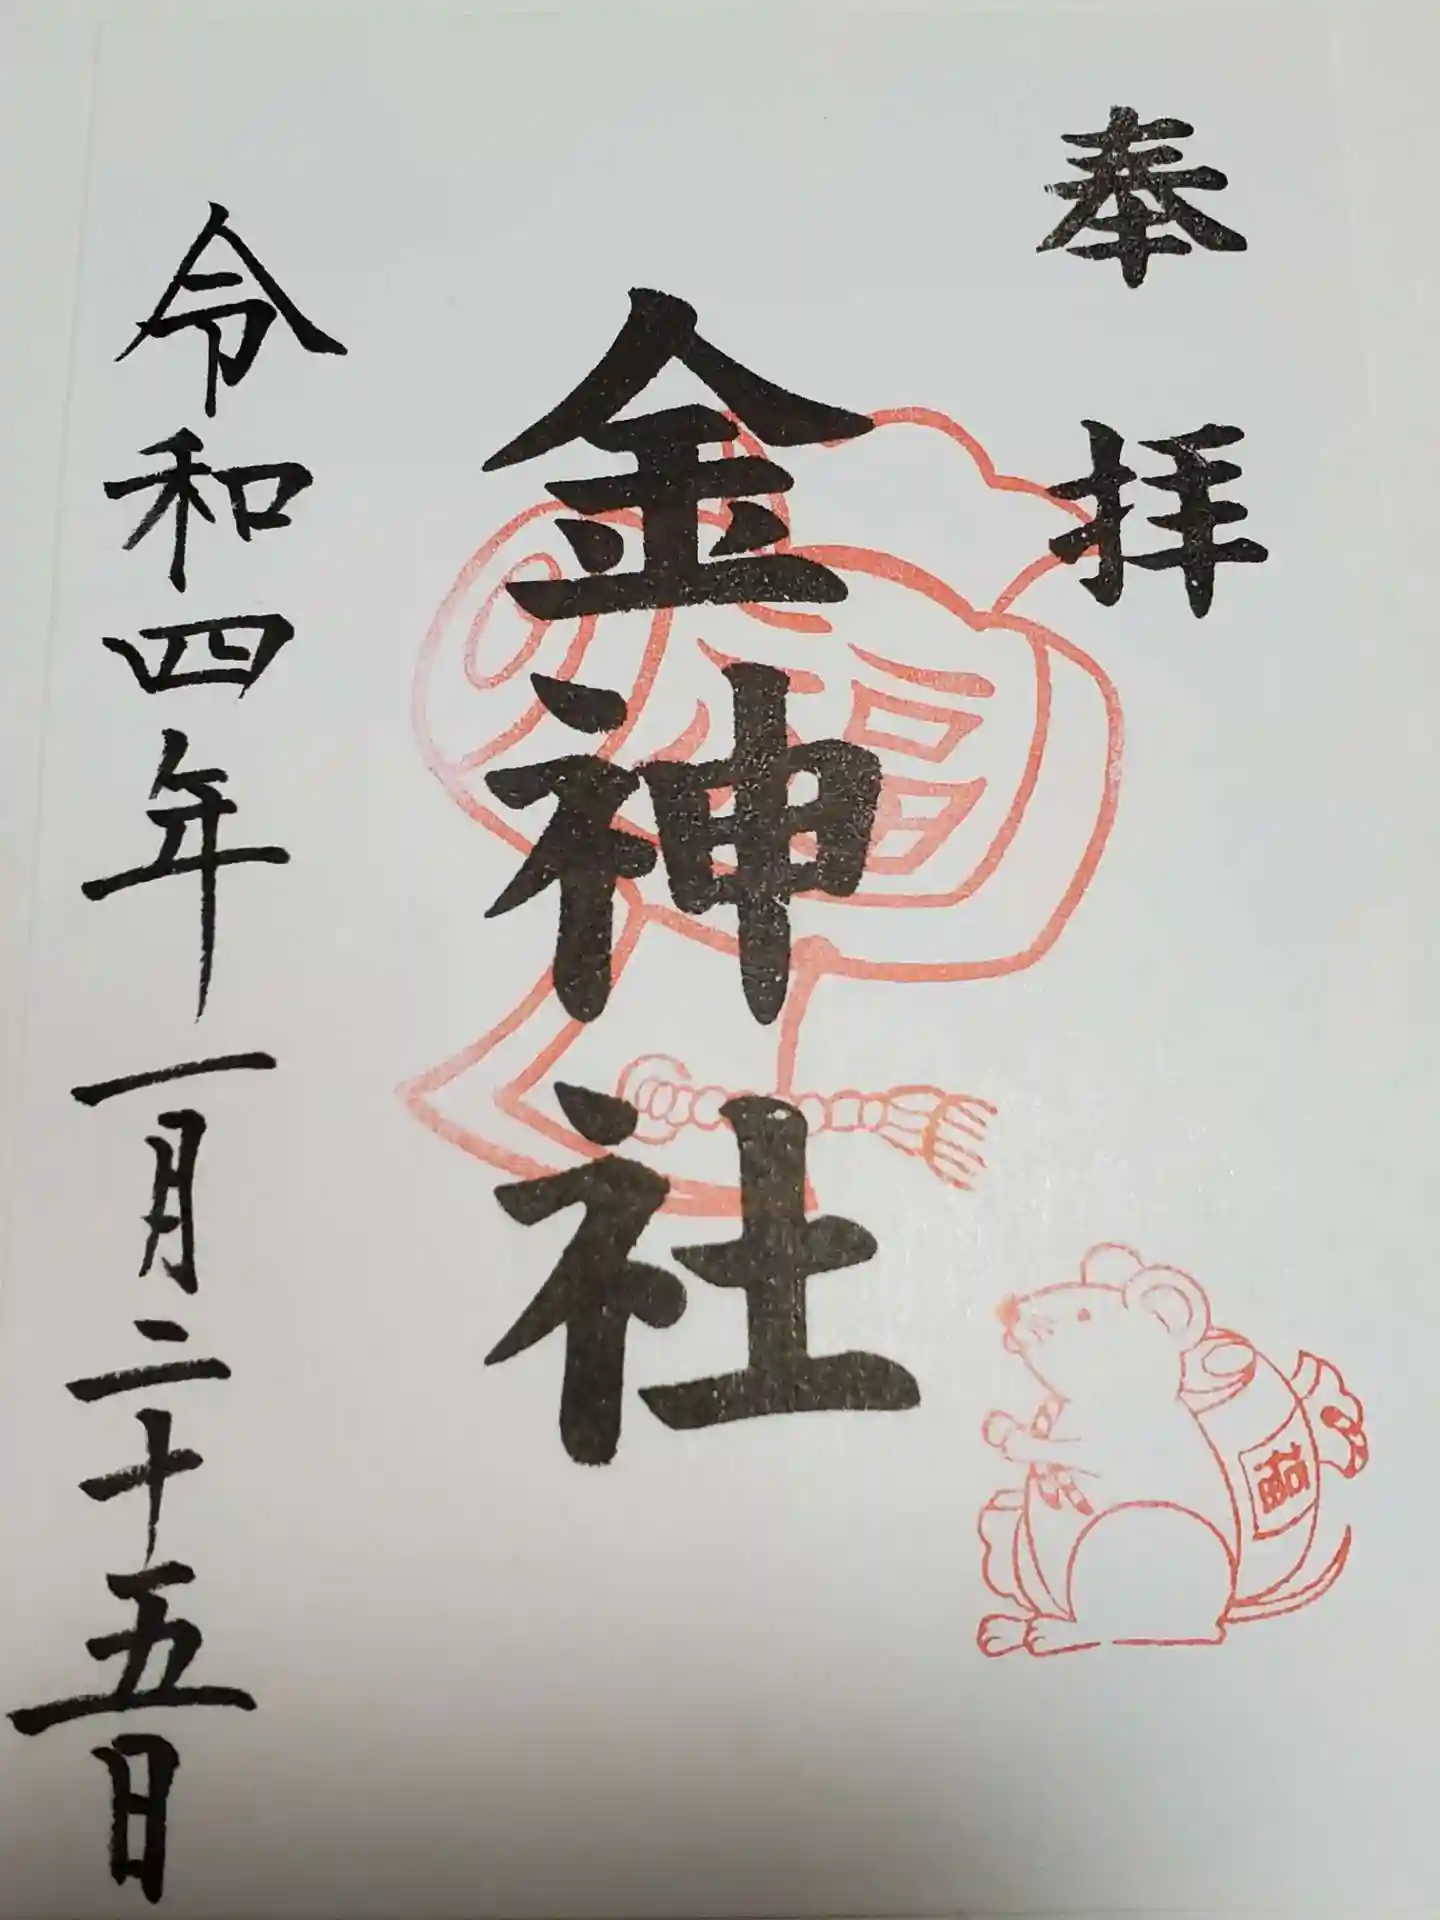 奉拝
金神社
福
福
令和四年一月二十五日